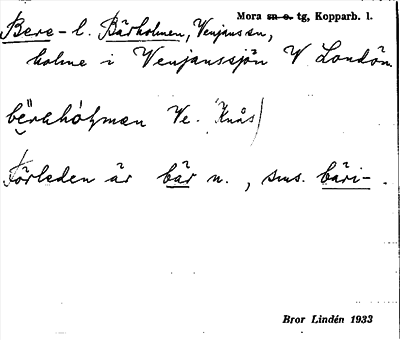 Mora sn o. tg, Kopparb. l.
Bere- l. Bärholmen, Venjans sn,
holme i Venjanssjön V. Londön.
bërehóɫmen Ve. (Knås)
Förleden är bär n., sms. bäri-.
Bror Lindén 1933